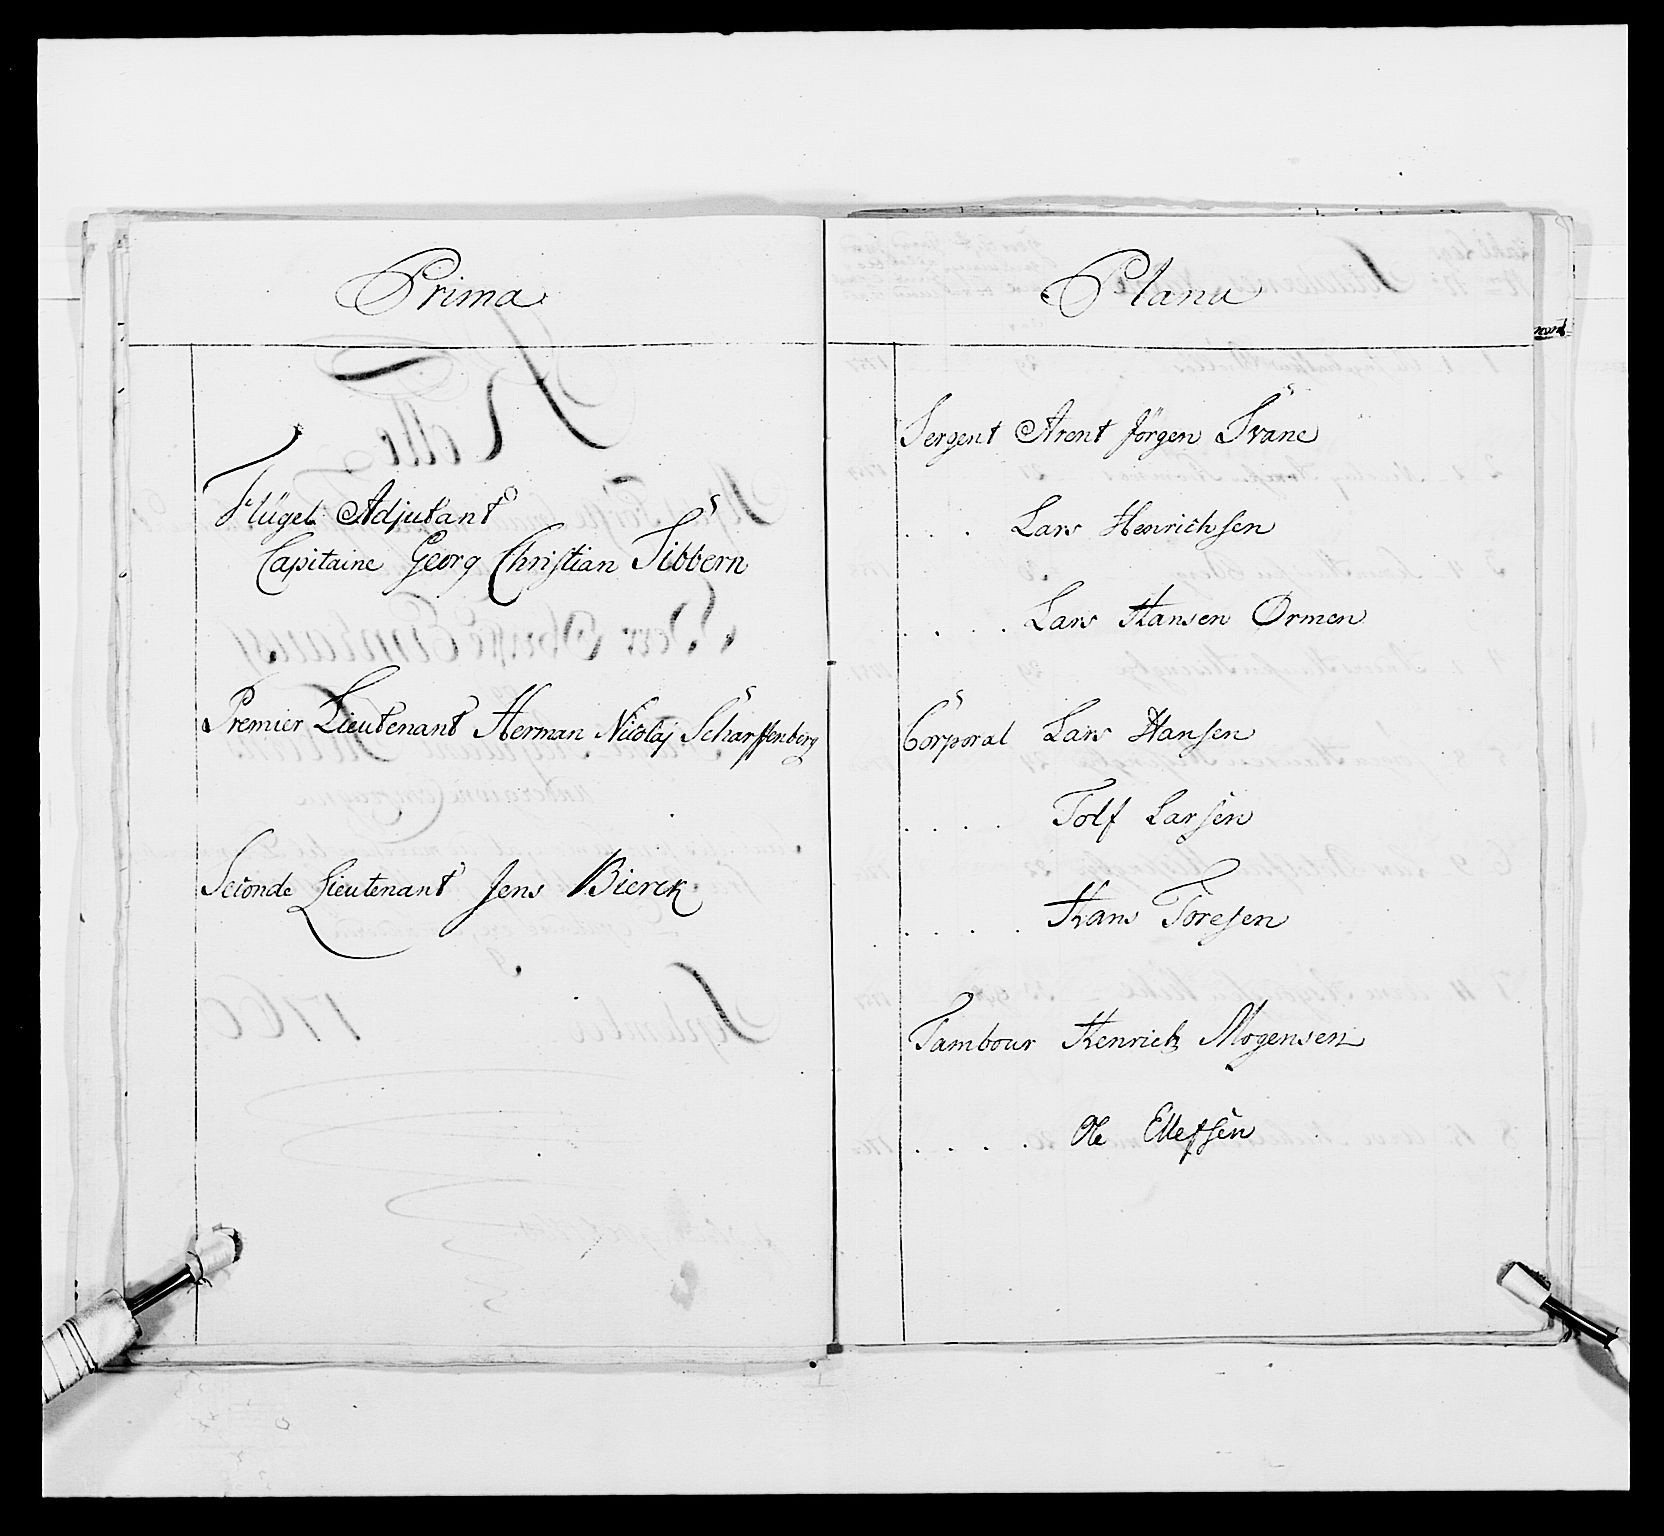 Prima
Flügel Adjutant
Capitaine Georg Christian Sibbern
Premier Lieutenant Herman Nicolaj Scharffenberg
Seconde Lieutenant Jens Bierck
Plana
Sergent Arent Jörgen Svane
. . . Lars Henrichsen
. . . . Lars Hansen Ormen
Corporal Lars Hansen
. . . . Tolf Larsen
. . . . Hans Toresen
Tambour Henrich Mogensen
. . . . Ole Ellefsen